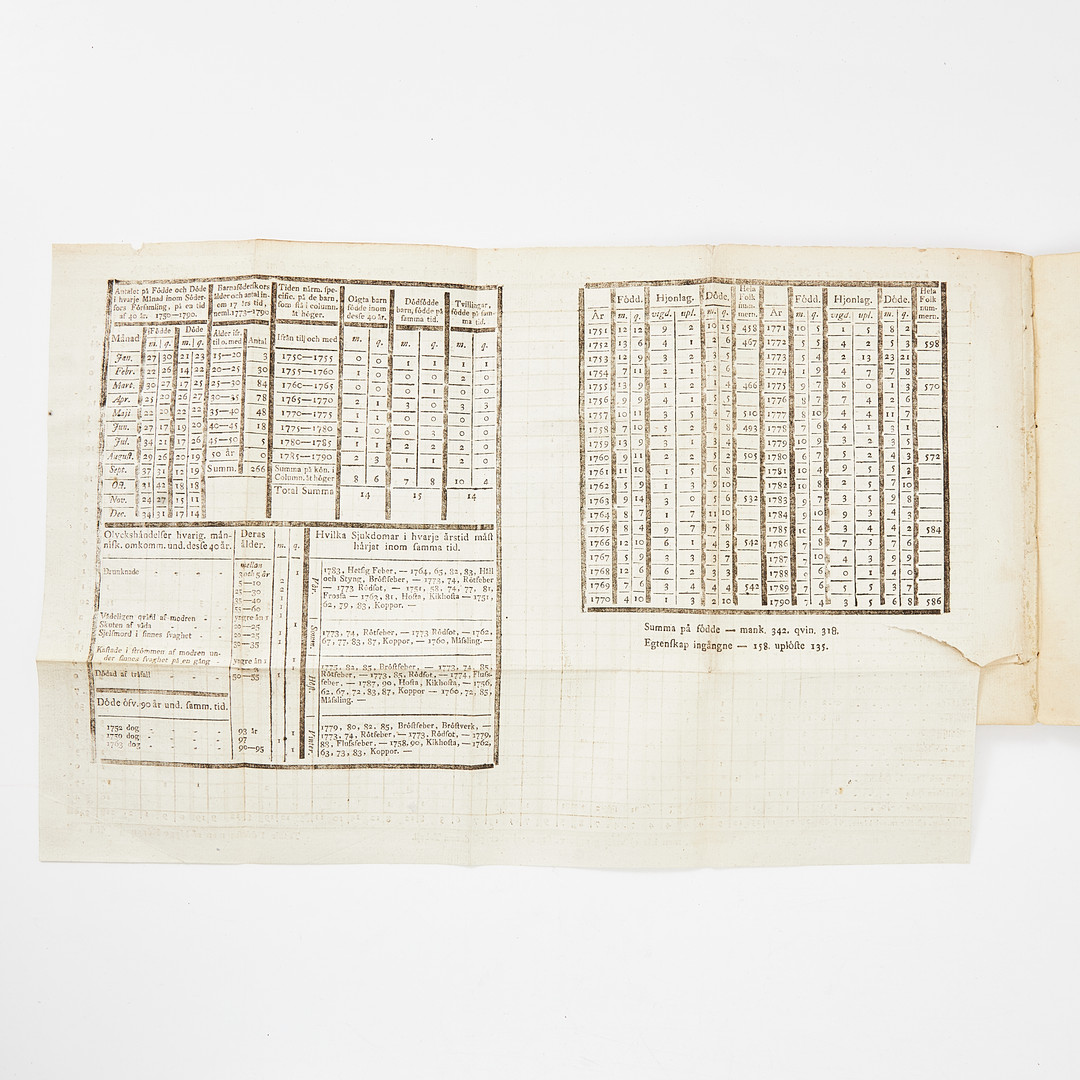 Antalet på Födde och Döde
i hvarje Månad inom Söder-
fors Församling, på en tid
af 40 år. 1750—1790.
Månad Födde Döde
m. q. m. q.
Jan. 27 30 21 23
Febr. 22 26 14 22
Mart. 30 27 17 25
Apr. 25 20 26 27
Maji 22 20 22 22
Jun. 27 17 19 20
Jul. 34 21 17 26
August. 29 26 20 19
Sept. 37 31 12 19
Oct. 31 42 18 18
Nov. 24 27 15 11
Dec. 34 31 17 14
Barnaföderskors
ålder och antal in-
om 17 års tid,
neml. 1773—1790
Ålder ifr.
til o. med Antal
15—20 3
20—25 30
25—30 84
30—35 78
35—40 48
40—45 18
45—50 5
50 år 0
Summ. 266
Tiden närm. spe-
cific. på de barn,
som stå i column.
åt höger.
Ifrån til j och med
1750—1755
1755—1760
1760—1765
1765—1770
1770—1775
1775—1780
1780—1785
1785—1790
Summa på kön. i
Column. åt höger
Total Summa
Oägta barn
födde inom
desse 40 år.
m. q.
0 0
1 0
0 0
2 1
1 1
1 0
1 1
2 3
8 6
14
Dödfödde
barn, födde på
samma tid.
m. q.
1 1
0 0
0 2
3 3
0 0
0 3
2 2
1 1
7 8
15
Tvillingar,
födde på sam-
ma tid.
m. q.
1 1
0 0
4 0
3 3
0 0
0 0
2 0
2 0
10 4
14
Olyckshändelser hvarig. män-
nisk. omkomm. und. desse 40 år.
Deras
ålder.
m. q.
Drunknade
mellan
3 och 5 år
5—10
25—30
35—40
55—60
Vådeligen qväfd af modren yngre än 1
Skuten af våda 20—25
Sjelfmord i sinnes svaghet 20—25
30—35
Kastade i strömmen af modren un-
der sinnes svaghet på en gång yngre än 1
Dödad af träfall 50—55
Döde öfv. 90 år und. samm. tid.
1752 dog 93 år
1759 dog 97
1763 dog 90—95
Hvilka Sjukdomar i hvarje årstid mäst
härjat inom samma tid.
Vår.
1783, Hetsig Feber, — 1764, 65, 82, 83, Håll
och Styng, Bröstfeber, — 1773, 74, Rötfeber
— 1773 Rödsot, — 1751, 58, 74, 77, 81,
Frossa — 1763, 81, Hosta, Kikhosta — 1751,
62, 79, 83, Koppor. —
Somm.
1773, 74, Rötfeber, — 1773 Rödsot, — 1762,
67, 77, 83, 87, Koppor, — 1760, Mässling. —
Höst.
1775, 82, 85, Bröstfeber, — 1773, 74, 85,
Rötfeber, — 1773, 85, Rödsot, — 1774, Fluss-
feber, — 1787, 90, Hosta, Kikhosta, — 1756,
62, 67, 72, 83, 87, Koppor — 1760, 72, 85,
Mässling. —
Vinter.
1779, 80, 82, 85, Bröstfeber, Bröstverk, —
1773, 74, Rötfeber, — 1773, Rödsot, — 1779,
88, Flussfeber, — 1758, 90, Kikhosta, — 1762,
63, 73, 83, Koppor. —
År Född. Hjonlag. Döde. Hela
Folk
num-
mern.
m. q. vigd. upl. m. q.
1751 12 12 9 2 10 15 458
1752 13 6 4 1 2 6 467
1753 12 9 3 2
1754 7 11 2 1
1755 13 9 1 2 1 4 466
1756 9 9 4 1 5 5
1757 10 11 3 5 4 7 510
1758 7 10 5 2 4 8 493
1759 13 9 3 1 2 7
1760 9 11 2 2 5 7 505
1761 11 10 1 5 6 8
1762 5 9 1 3 9 10
1763 9 14 3 0 5 6 532
1764 8 7 1 7 11 10
1765 8 4 9 7 7 8
1766 12 10 6 1 3 4 542
1767 5 9 3 3
1768 12 6 6 2 3 3
1769 7 6 3 4 4 5 542
1770 4 10 1 3 2 10
År Född. Hjonlag. Döde. Hela
Folk
num-
mern.
m. q. vigd. upl. m. q.
1771 10 5 1 5 8 2
1772 5 5 4 2 5 3 598
1773 5 4 2 13 23 21
1774 1 9 4 7 7 8
1775 9 7 8 0 1 3 570
1776 8 7 7 4 2 6
1777 8 10 4 4 11 7
1778 7 6 4 1 3 1
1779 10 9 3 2 3 5
1780 6 7 5 2 4 3 572
1781 10 4 9 5 5 3
1782 10 8 2 5 7 10
1783 9 7 3 5 9 8
1784 10 9 9 3 5 4
1785 9 10 1 5 4 3 584
1786 7 8 7 5 7 6
1787 7 10 4 3 9 9
1788 9 6 0 1 4 0
1789 7 6 4 5 3 7
1790 7 4 3 5 6 8 586
Summa på födde — mank. 342. qvin. 318.
Egtenskap ingångne — 158. uplöste 135.